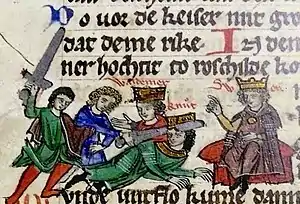 vor de keiser mit gro
dat deme rike Is den
ner hochtit to roschilde ko
waldemer
knut
Swen
unde
kume dann